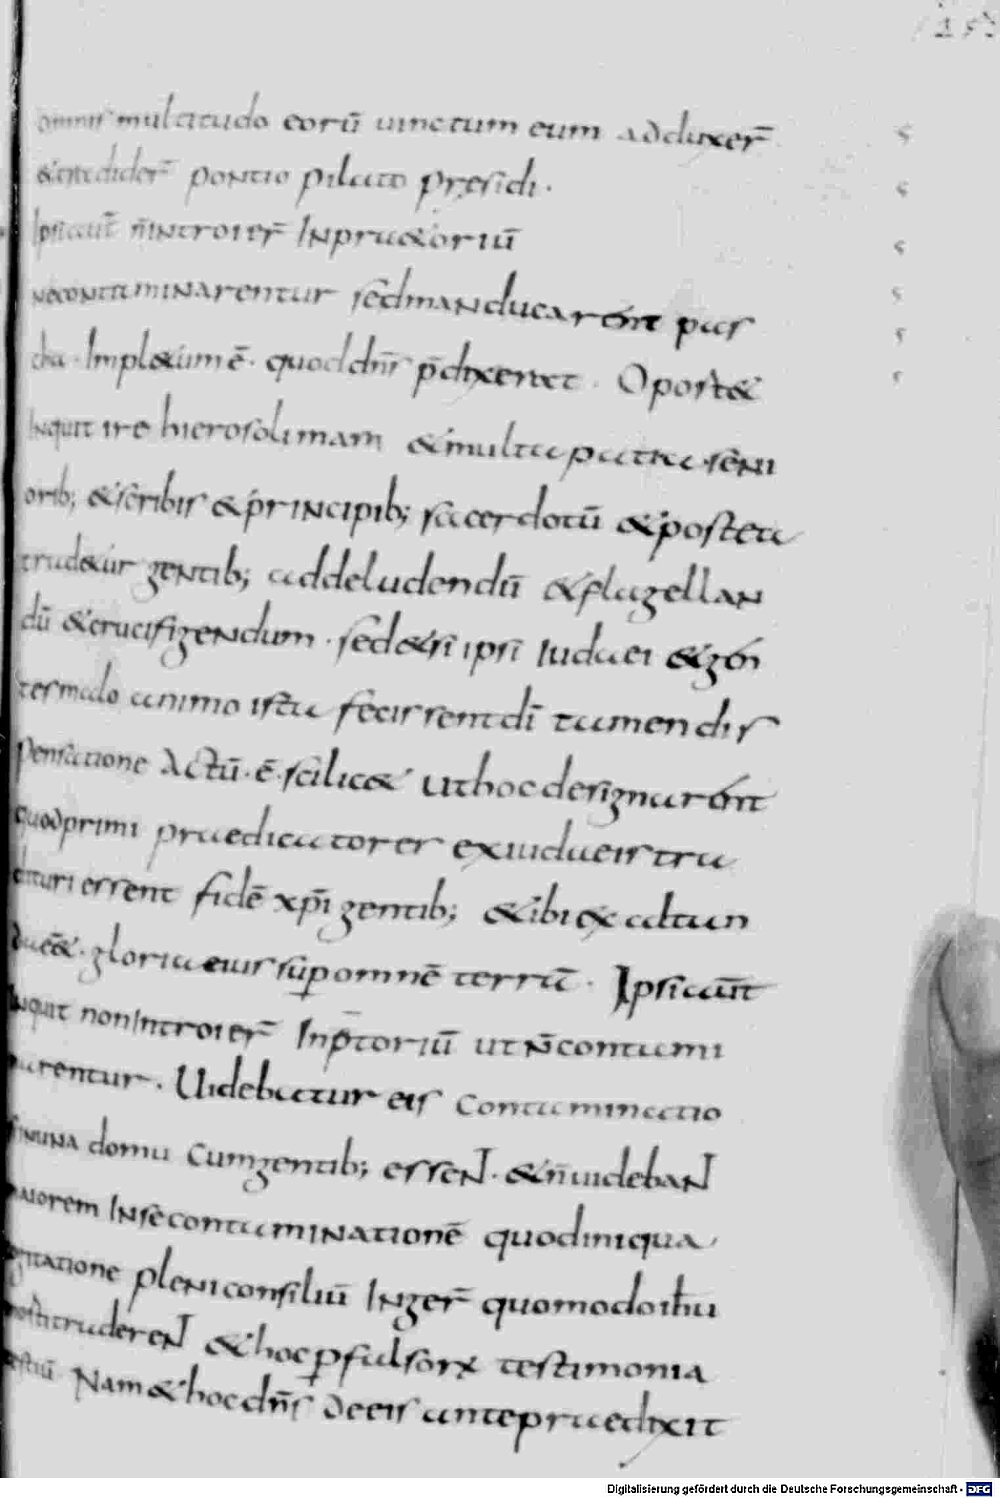 omnis multitudo eorū uinctum eum adduxer̄
&tradider̄ pontio pilato presidi·
Ipsi aut̄ n̄ introier̄ In pr&oriū
ne contaminarentur sed manducarent pas
cha· Impl&um ē· quod dn̄s p̄dixerat· Oport&
Inquit ire hierosolimam & multa pati a seni
orib; & scribis & principib; sacerdotū & postea
trad&ur gentib; ad deludendū & flagellan
dū & crucifigendum· sed & si ipsi Iudaei & gen
tes malo animo ista fecissent di tamen dis
pensatione actū· ē· scilic& ut hoc designarent
quod primi praedicatores ex iudaeis tra
dituri essent fidē xp̄i gentib; & ibi exaltan
da ē&· gloria eius sup omnē terrā· Ipsi aut̄
Inquit non Introier̄ In p̄toriū ut n̄ contami
narentur· Uidebatur eis contaminatio
si in una domu cum gentib; essent· & n̄ uidebant
maiorem In se contaminationē quod iniqua
cogitatione pleni consiliū Inier̄ quomodo ih̄m
morti traderent & hoc p falsorx testimonia
testiū Nam & hoc dn̄s de eis ante praedixit
Digitalisierung gefördert durch die Deutsche Forschungsgemeinschaft - DFG